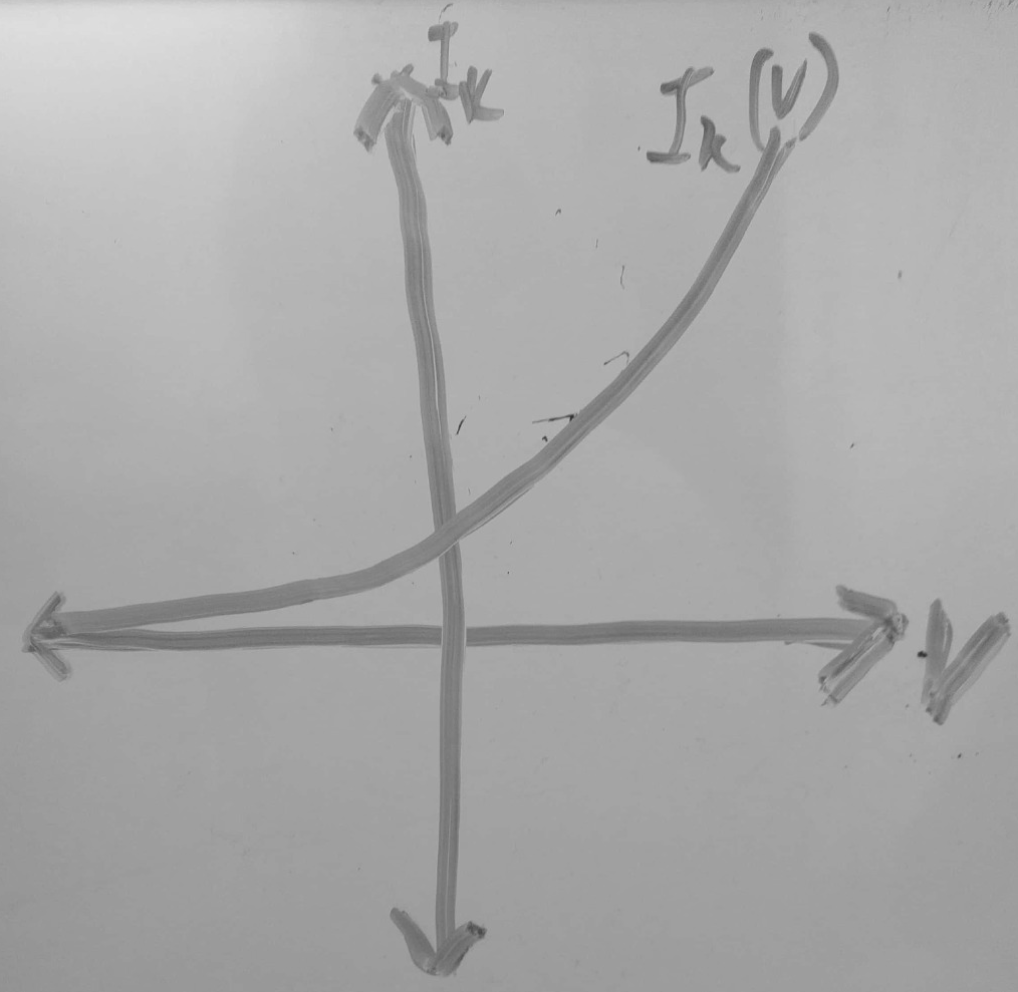 I_K
I_k(V)
V